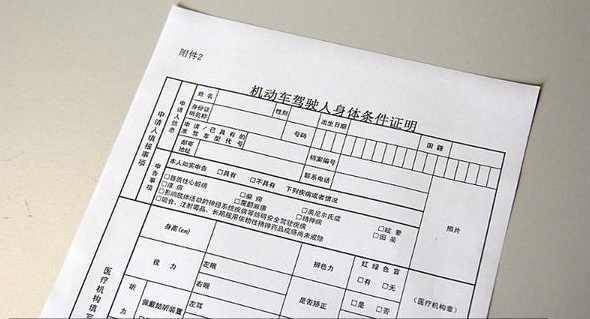 附件2
机动车驾驶人身体条件证明
姓名 性别 出生日期 国籍
身份证明名称 号码
申请/已具有的准驾车型代号 档案编号
邮寄地址 联系电话
申请人填报事项
申请人信息
申告事项
本人如实申告 □具有 □不具有 下列疾病或者情况
□器质性心脏病 □癫痫 □美尼尔氏症 □眩晕
□癔病 □震颤麻痹 □精神病 □痴呆
□影响肢体活动的神经系统疾病等妨碍安全驾驶疾病
□吸食、注射毒品、长期服用依赖性精神药品成瘾尚未戒除
照片
医疗机构填写
身高(cm) 辨色力 红绿色盲
□有 □无
视力 左眼 是否矫正 □是 □否
右眼
(医疗机构章)
听力 佩戴助听装置 左耳